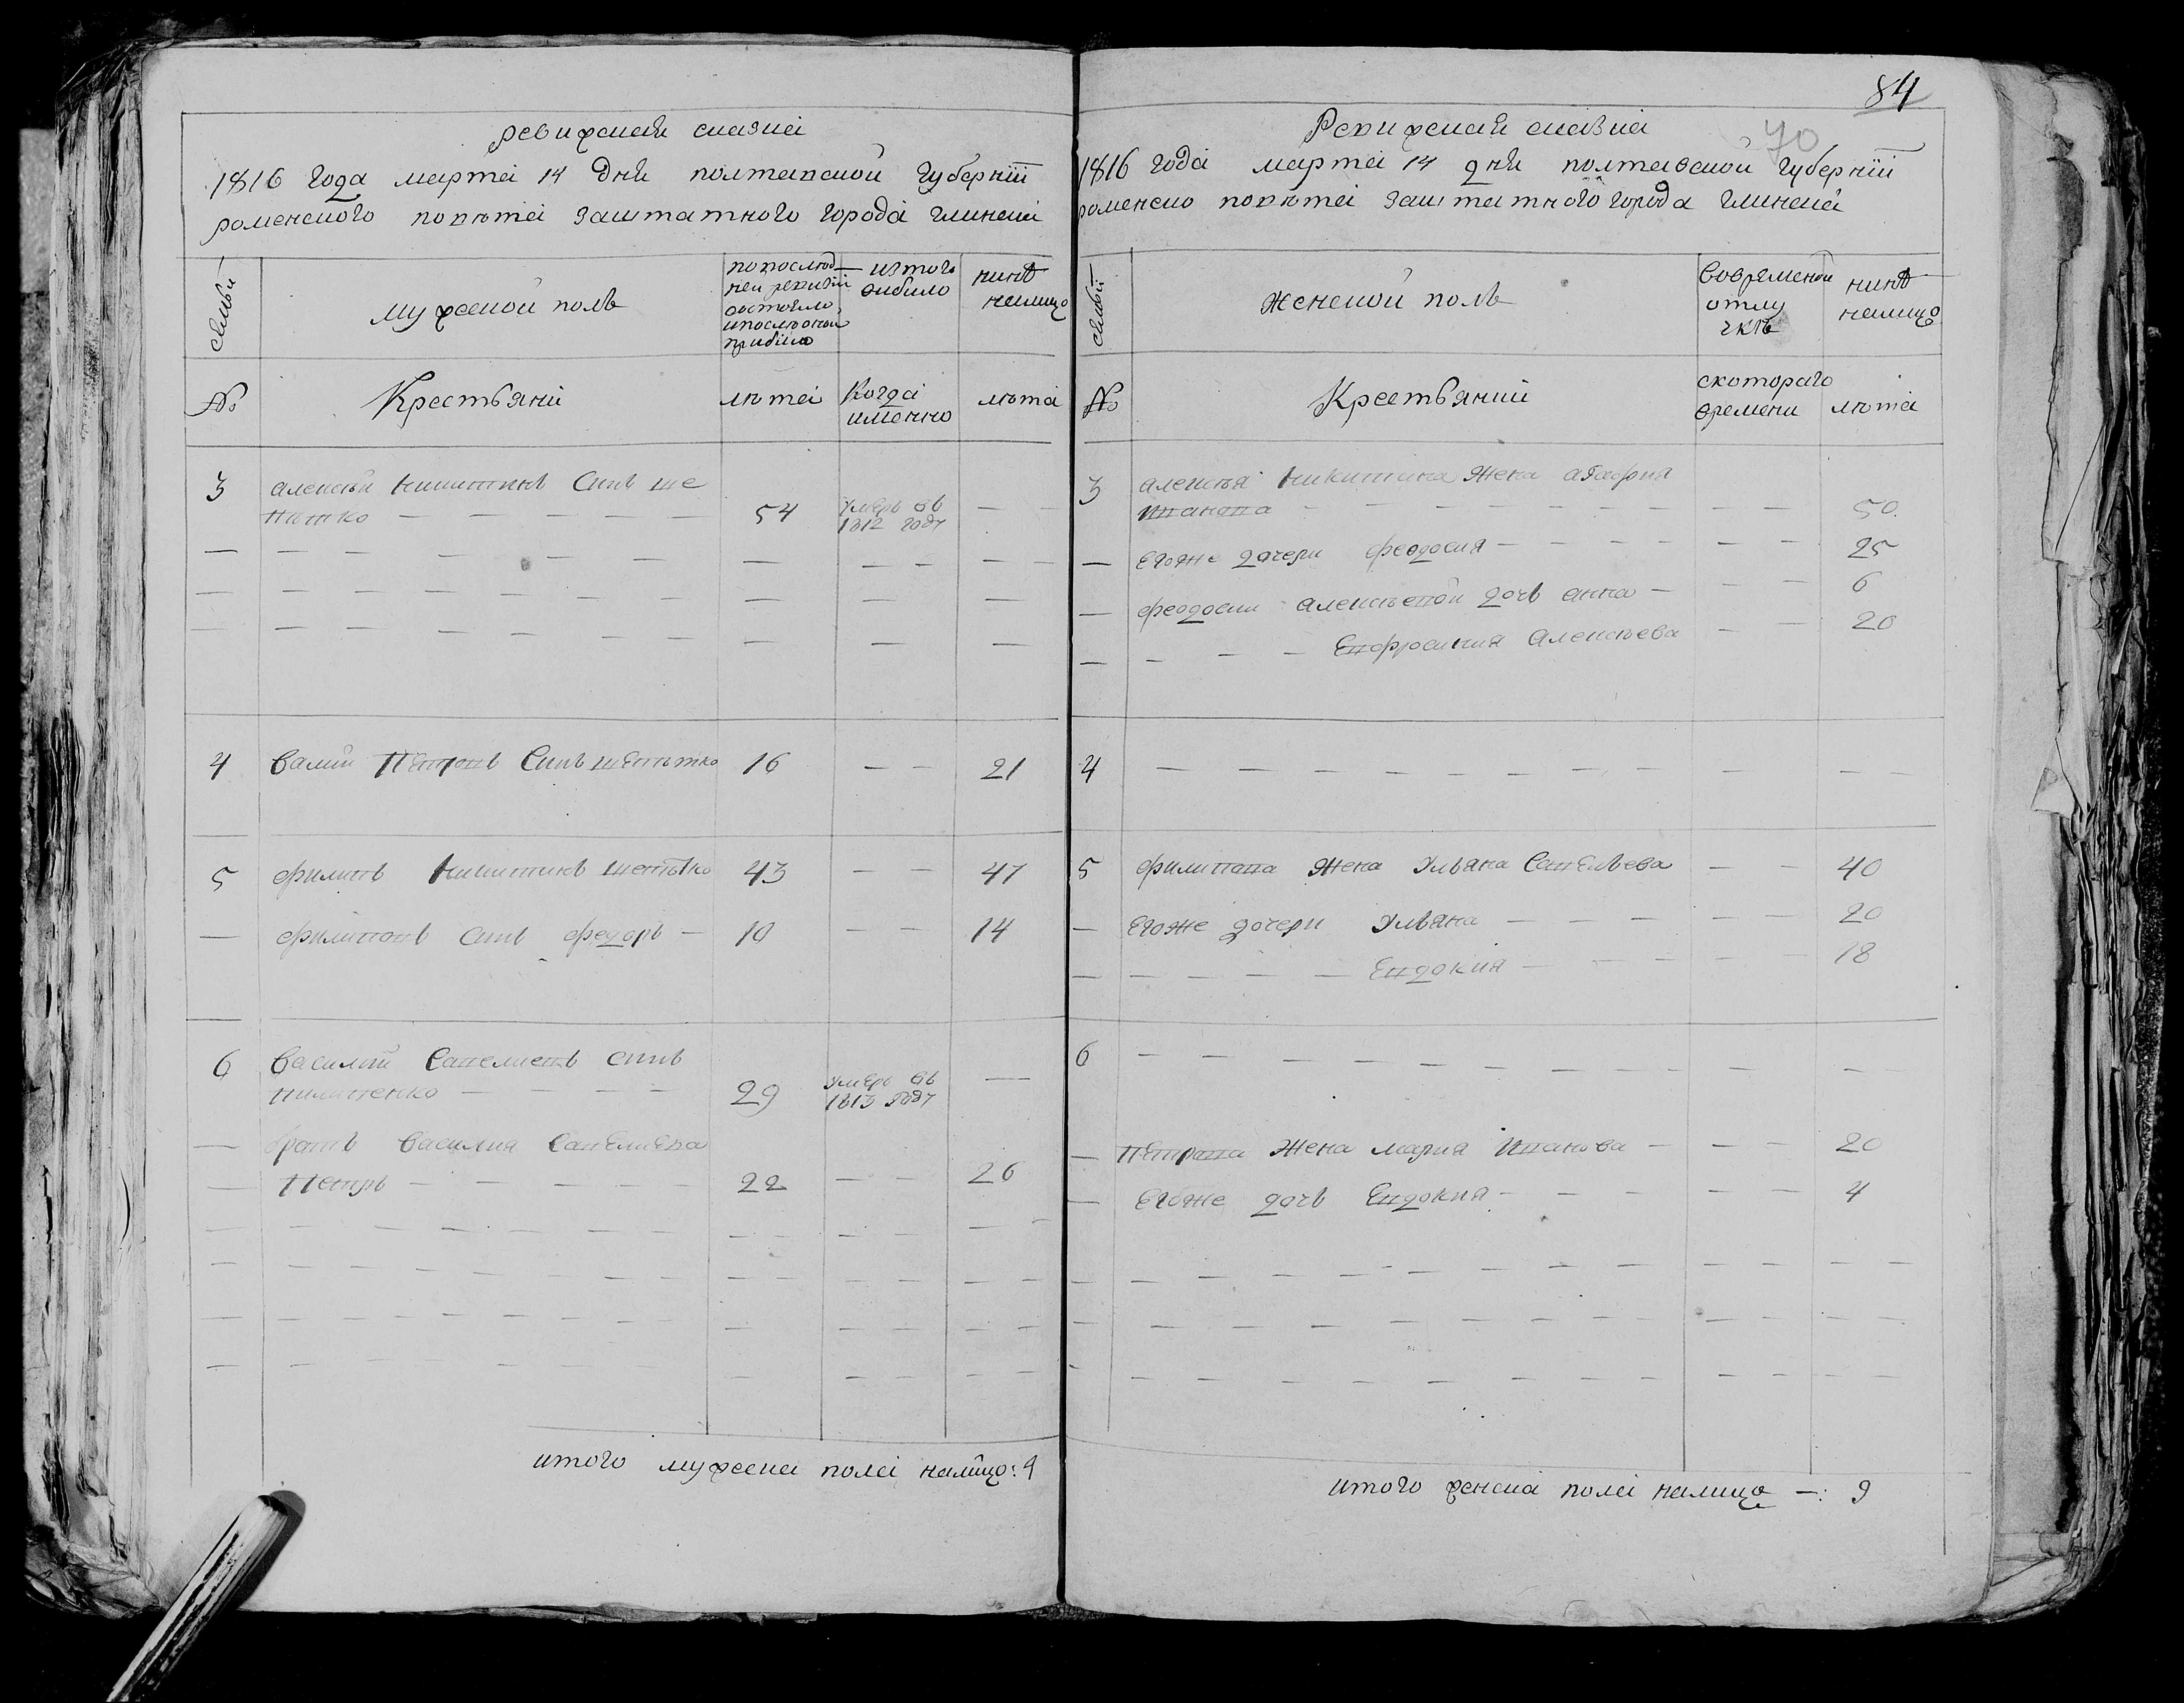 84
70
ревижская сказка
1816 года марта 14 дня полтавской губернїи
роменского повѣта заштатного города глинска
семьи
мужеской полъ
по послѣд
ней ревизїи
состояло
и послѣ оной
прибыло
изъ того
выбило
нинѣ
налицо
№
Крестьяни
лѣта
Когда
именно
лѣта
3 алексѣй никитинъ синъ ще
питко — — — — — 54 умеръ въ 1812 году — —
4 васили Петровъ Синъ щепитко 16 — — 21
5 филипъ никитинъ щепѣтко 43 — — 47
— филиповъ синъ федоръ — 10 — — 14
6 василий Савелиевъ синъ
пилипенко — — — — 29 умеръ въ 1813 году —
— братъ василия Савелиева
— Петръ — — — — — 22 — — 26
итого мужеска пола налицо: 4
Ревижская сказка
1816 года марта 14 дня полтавской губернїи
роменско повѣта заштатного города глинска
семьи
женской полъ
вовременой
отлу
чкѣ
нинѣ
налицо
№
Крестьяний
скотораго
времени
лѣта
3 алексѣя никитина жена агафия
иванова — — — — — — — — 50.
— егоже дочери феодосия — — — — — — 25
— феодосии алексѣевой дочь анна — — — 6
— — — — Евфросиния Алексѣева — — 20
4 — — — — — — — — — — —
5 филипова жена Ульяна Савельева — — 40
— егоже дочери Ульяна — — — — — — 20
— — — — — Евдокия — — — — — — 18
6 — — — — — — — — — — —
— Петрова жена мария Иванова — — — 20
— егоже дочь Евдокия — — — — — 4
итого женска пола налицо —: 9